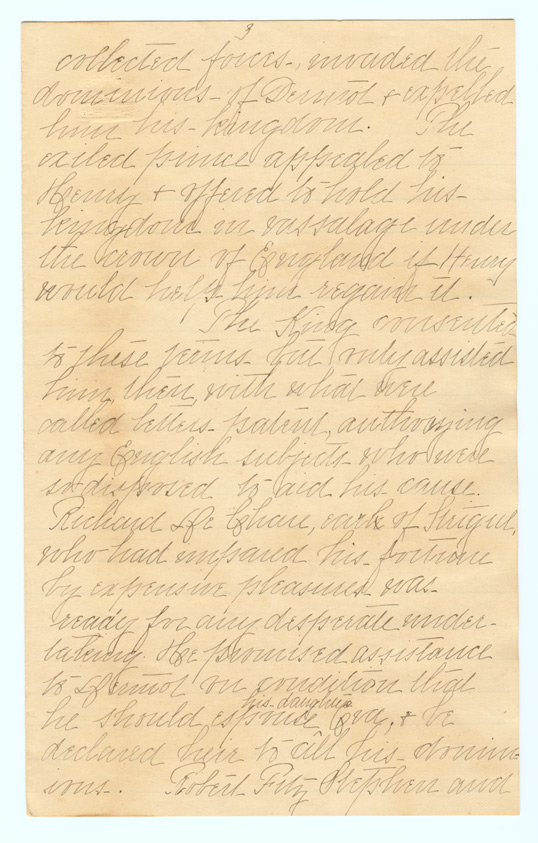 3
collected forces, invaded the
dominions of Dermot & expelled
him his kingdom. The
exiled prince appealed to
Henry & offered to hold his
kingdom in vassalage under
the crown of England if Henry
would help him regain it.
The King consented
to these terms but only assisted
him then with what were
called letters patent, authorizing
any English subjects who were
so disposed to aid his cause.
Richard De Clare, earl of Strigul,
who had impared his fortune
by expensive pleasures was
ready for any desperate under-
taking. He promised assistance
to Dermot on condition that
his daughter
he should espouse Eva, & be
declared heir to all his domin-
ions. Robert Fitz Stephen and